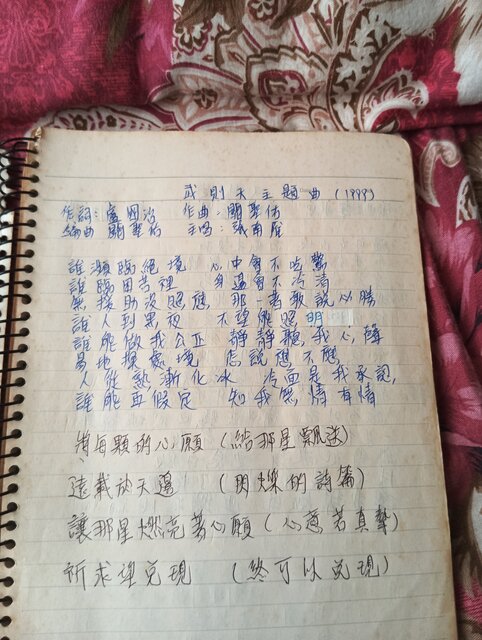 武則天主題曲 (1999)
作詞:盧國沾 作曲:關聖佑
編曲 關聖佑 主唱:張南雁
誰瀕臨絕境 心中會不吃驚
誰臨困苦裡 身邊會不冷清
無援助沒照應, 那一者敢說必勝
誰人到黑夜 不望能照明
誰能做我公正 靜靜聽我心聲
易地換處境 怎說想不應
人從熱漸化冰 冷血是我承認,
誰能再假定 知我無情有情
每顆的心願 (給那星飄送)
遠載放天邊 (閃爍的詩篇)
讓那星燃亮著心願 (心意若真摯)
祈求望兌現 (終可以兌現)